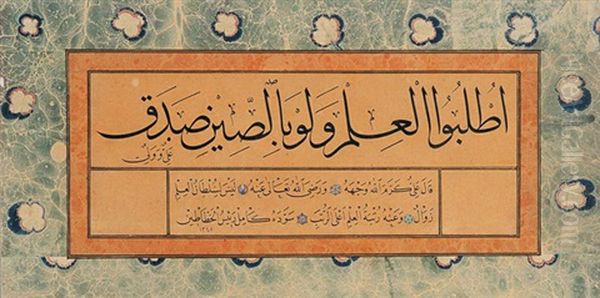 اطلبوا العلم ولو بالصين صدق
قال علي كرم الله وجهه ورضي الله تعالى عنه ليس لسلطان العلم
زوال وعنه رتبة العلم اعلى الرتب سوده كامل رئيس الخطاطين